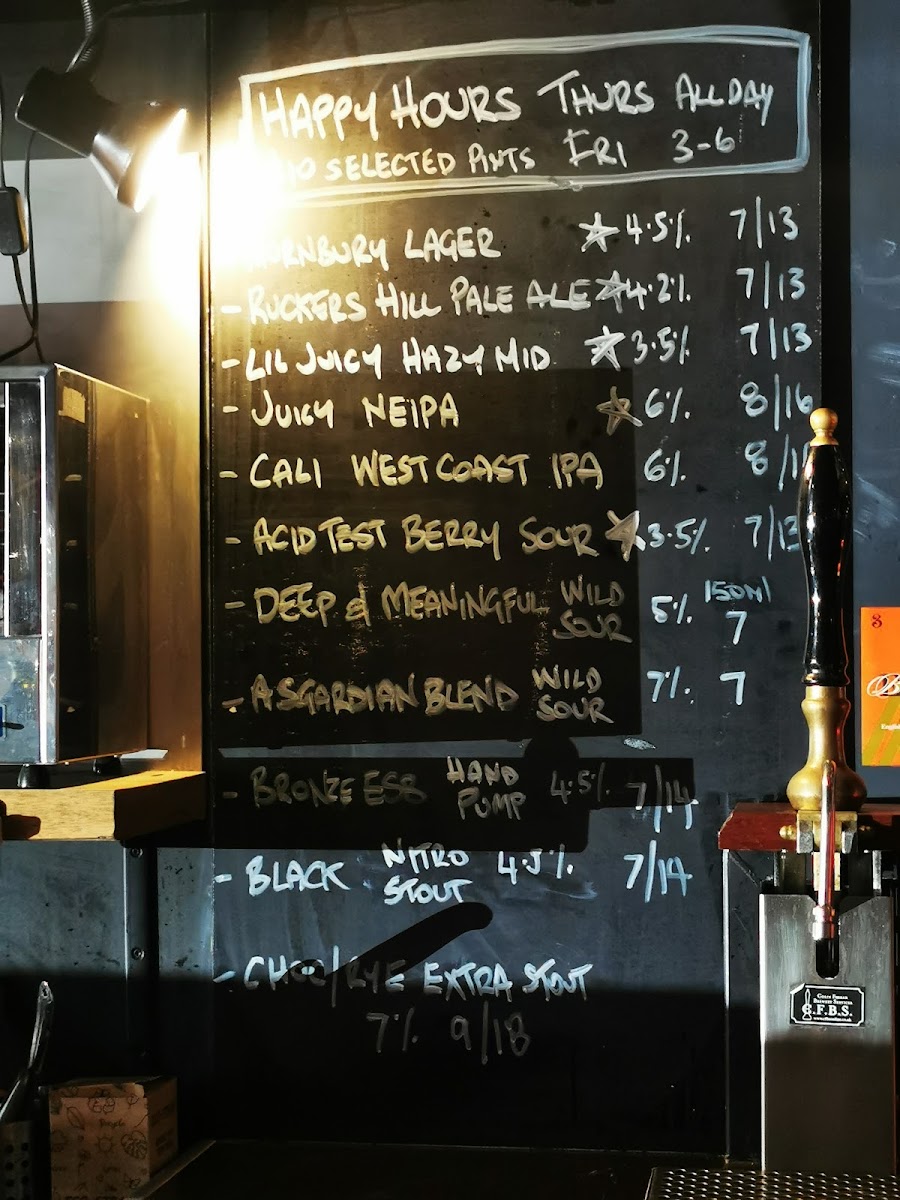 HAPPY HOURS THURS ALL DAY
10 SELECTED PINTS FRI 3-6
LAGER ☆ 4.5% 7/13
- RUCKERS HILL PALE ALE ☆ 4.2% 7/13
- LIL JUICY HAZY MID ☆ 3.5% 7/13
- JUICY NEIPA ☆ 6% 8/16
- CALI WEST COAST IPA 6% 8/1
- ACID TEST BERRY SOUR ☆ 3.5% 7/13
- DEEP & MEANINGFUL WILD SOUR 5% 150ml 7
- ASGARDIAN BLEND WILD SOUR 7% 7
- BRONZE ESB HAND PUMP 4.5% 7/14
- BLACK NITRO STOUT 4.5% 7/14
- CHOC/RYE EXTRA STOUT
7% 9/18
C.F.B.S.
8